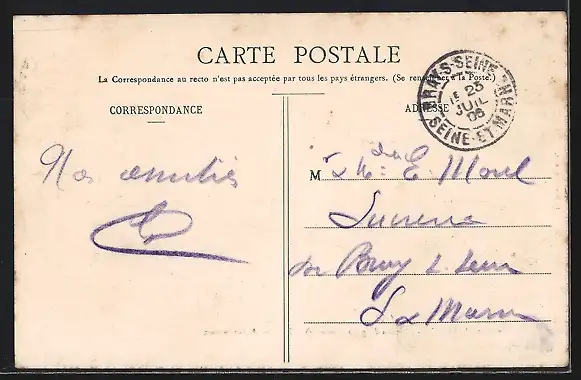 CARTE POSTALE
La Correspondance au recto n'est pas acceptée par tous les pays étrangers. (Se renseigner à la Poste.)
CORRESPONDANCE
ADRESSE
SEINE
23
JUIL
SEINE-ET-MARNE
Nos amitiés
M
E. Morel
Bray s. Seine
S. & Marne